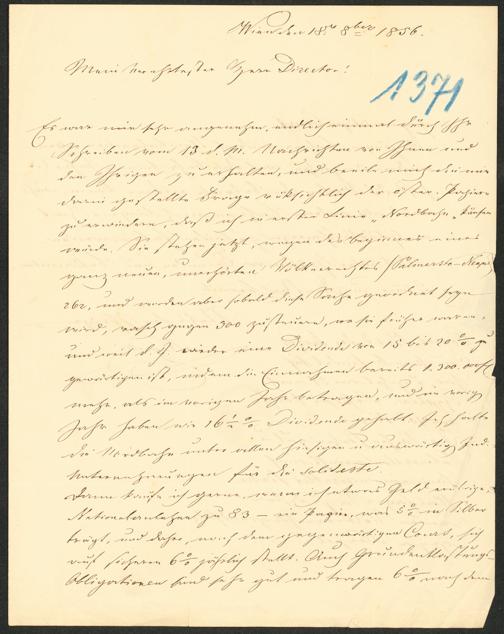 Wien den 18. 8ber 1856.
Mein verehrtester Herr Director!
1371
Es war mir sehr angenehm, endlich einmal durch Ihr
Schreiben vom 13. d. M. Nachrichten von Ihnen und
den Ihrigen zu erhalten, und beeile mich die mir
darin gestellte Frage rücksichtlich der öster. Papiere
zu erwiedern, daß ich in erster Linie „Nordbahn“ kaufen
würde. Sie stehen jetzt, wegen des Beginnes eines
ganz neuen, unerhörten Völkerrechtes
262, und werden aber sobald diese Sache geordnet seyn
wird, rasch gegen 300 zusteuern, wo sie früher waren,
und weil d. J. wieder eine Dividende von 15 bis 20 % zu
gewärtigen ist, indem die Einnahmen bereits 1,300.000
mehr, als im vorigen Jahr betragen, und im vorig.
Jahr haben wir 16 % Dividende gehabt. Ich halte
die Nordbahn unter allen hiesigen u auswärtig. Ind.
Unternehmungen für die solideste.
Dann kaufe ich gerne, wenn ich etwas Geld
Nationalanlehen zu 83 – ein Papier, was 5 % in Silber
trägt, und daher, nach dem gegenwärtigen Cours, sich
auf sichere 6 % jährlich stellt. Auch Grundentlastungs-
Obligationen sind sehr gut und tragen 6 % nach dem